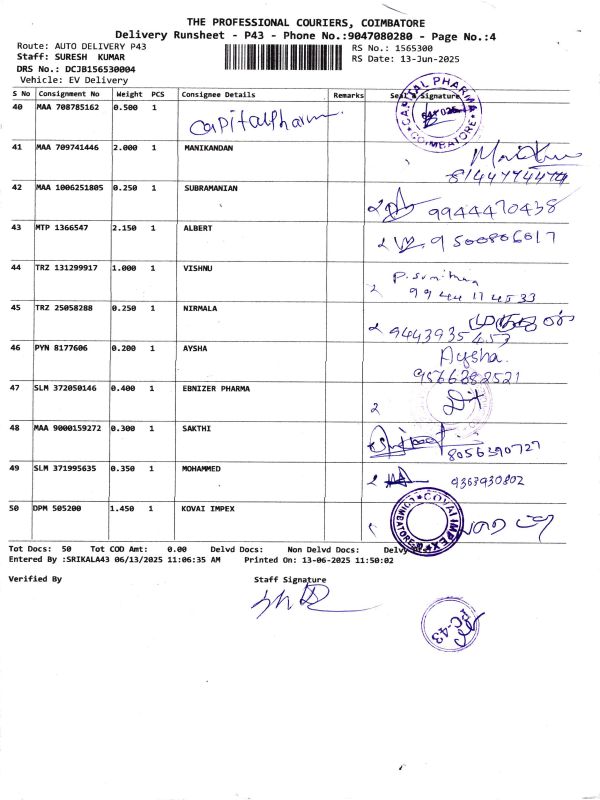 THE PROFESSIONAL COURIERS, COIMBATORE
Delivery Runsheet - P43 - Phone No.:9047080280 - Page No.:4
Route: AUTO DELIVERY P43 RS No.: 1565300
Staff: SURESH KUMAR RS Date: 13-Jun-2025
DRS No.: DCJB156530004
Vehicle: EV Delivery
S No Consignment No Weight PCS Consignee Details Remarks Seal & Signature
40 MAA 708785162 0.500 1 CapitalPharma CAPITAL PHARMA COIMBATORE
41 MAA 709741446 2.000 1 MANIKANDAN
8144774474
42 MAA 1006251805 0.250 1 SUBRAMANIAN 9944470438
43 MTP 1366547 2.150 1 ALBERT 9500806017
44 TRZ 131299917 1.000 1 VISHNU
9944174533
45 TRZ 25058288 0.250 1 NIRMALA
9443935453
46 PYN 8177606 0.200 1 AYSHA Aysha.
9566382521
47 SLM 372050146 0.400 1 EBNIZER PHARMA
48 MAA 9000159272 0.300 1 SAKTHI 8056390727
49 SLM 371995635 0.350 1 MOHAMMED 9363930802
50 DPM 505200 1.450 1 KOVAI IMPEX KOVAI IMPEX COIMBATORE
Tot Docs: 50 Tot COD Amt: 0.00 Delvd Docs: Non Delvd Docs:
Entered By :SRIKALA43 06/13/2025 11:06:35 AM Printed On: 13-06-2025 11:50:02
Verified By Staff Signature
PC-43